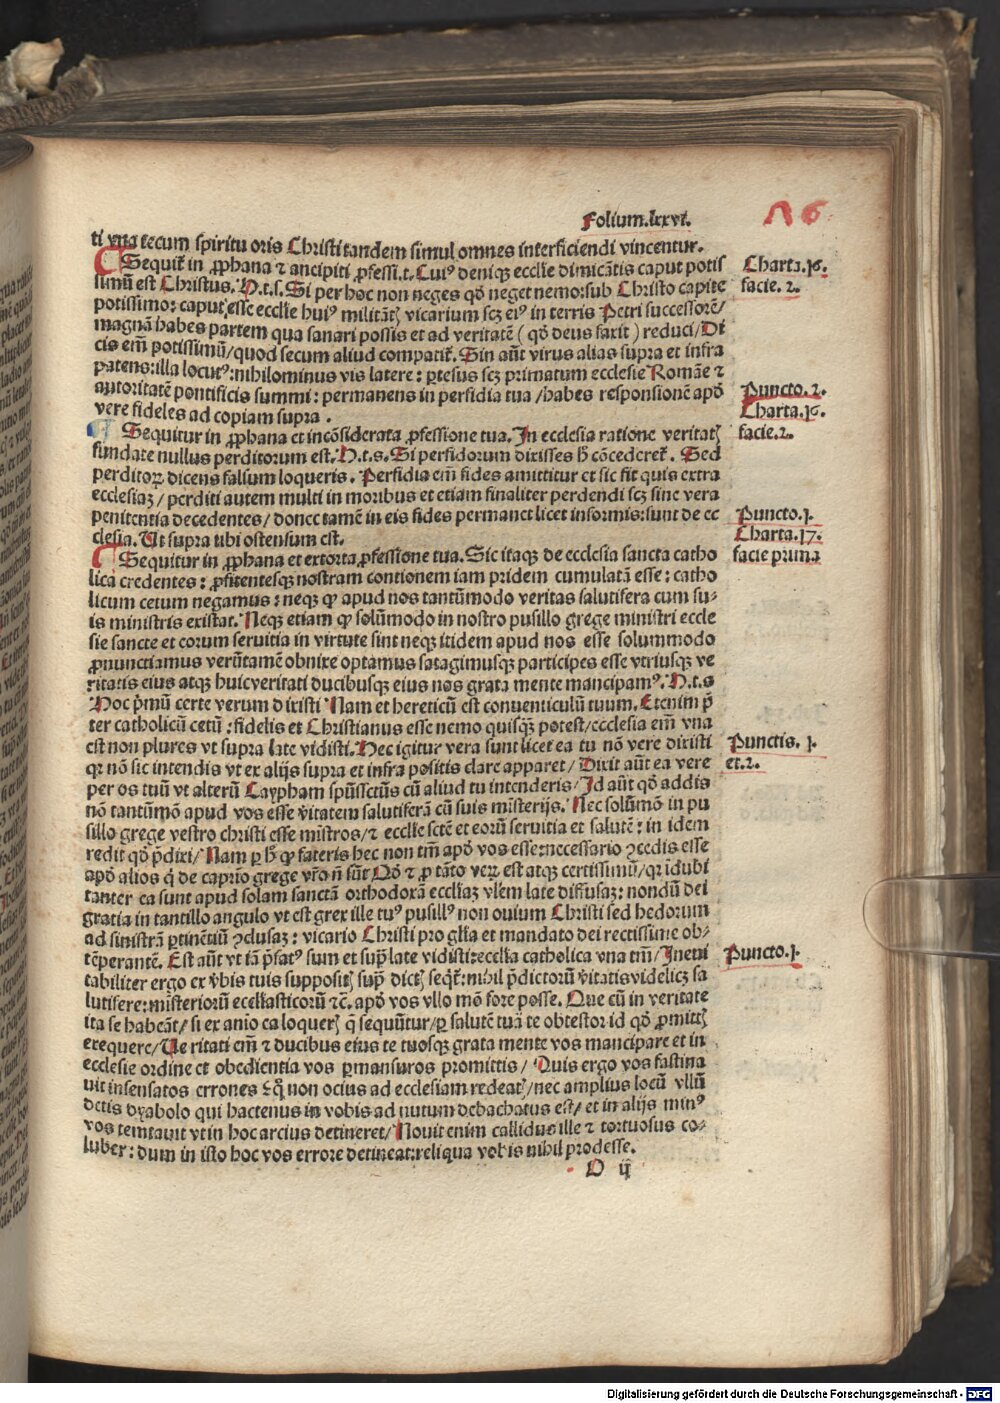 Folium.lxxvi.
76
ti vna tecum spiritu oris Christi tandem simul omnes interficiendi vincentur.
Sequit̄ in ꝓphana ⁊ ancipiti ꝓfessi.t. Cui⁹ deniqꝫ eccl̄ie dimicātis caput potis
simū est Christus. N.t.s. Si per hoc non neges qd̄ neget nemo: sub Christo capite
potissimo: caput esse eccl̄ie hui⁹ militātꝭ vicarium scꝫ ei⁹ in terris Petri successorē/
magnā habes partem qua sanari possis et ad veritatē (qd̄ deus faxit) reduci/ Di
cis em̄ potissimū/ quod secum aliud compatit̄. Sin aūt virus alias supra et infra
patens: illa locut⁹: nihilominus vis latere: ꝑtesus scꝫ primatum ecclesie Romāe ⁊
autoritatē pontificis summi: permanens in perfidia tua/ habes responsionē apd̄
vere fideles ad copiam supra.
Sequitur in ꝓphana et incōsiderata ꝓfessione tua. In ecclesia ratione veritatꝭ
fundate nullus perditorum est. N.t.s. Si perfidorum dixisses h̄ cōcederet̄. Sed
perditoꝝ dicens falsum loqueris. Perfidia em̄ fides amittitur et sic fit quis extra
ecclesiaꝫ/ perditi autem multi in moribus et etiam finaliter perdendi scꝫ sine vera
penitentia decedentes/ donec tamē in eis fides permanet licet informis: sunt de ec
clesia. Ut supra vbi ostensum est.
Sequitur in ꝓphana et extorta ꝓfessione tua. Sic itaqꝫ de ecclesia sancta catho
lica credentes: ꝓfitentesqꝫ nostram contionem iam pridem cumulatā esse: catho
licum cetum negamus: neqꝫ ꝙ apud nos tantūmodo veritas salutifera cum su-
is ministris existat. Neqꝫ etiam ꝙ solūmodo in nostro pusillo grege ministri eccle
sie sancte et eorum seruitia in virtute sint neqꝫ itidem apud nos esse solummodo
ꝓnunciamus verūtamē obnixe optamus satagimusqꝫ participes esse vtriusqꝫ ve
ritatis eius atqꝫ huic veritati ducibusqꝫ eius nos grata mente mancipam⁹. N.t.s
Hoc p̄mū certe verum dixisti Nam et hereticū est conuenticulū tuum. Etenim p̄
ter catholicū cetū: fidelis et Christianus esse nemo quisqꝫ potest/ ecclesia em̄ vna
est non plures vt supra late vidisti. Hec igitur vera sunt licet ea tu nō vere dixisti
qꝛ nō sic intendis vt ex alijs supra et infra positis clare apparet/ Dixit aūt ea vere
per os tuū vt alterū Caypham sp̄ūssct̄us cū aliud tu intenderis/ Id aūt qd̄ addis
nō tantūmō apud vos esse v̄itatem salutiferā cū suis mīsterijs. Nec solūmō in pu
sillo grege vestro christi esse mīstros/ ⁊ eccl̄ie sctē et eorū seruitia et salutē: in idem
redit qd̄ p̄dixi/ Nam ꝑ h̄ ꝙ fateris hec non tm̄ apd̄ vos esse: necessario ↄcedis esse
apd̄ alios q̄ de caprio grege vr̄o n̄ sūt Qd̄ ⁊ ꝓ tāto veꝝ est atqꝫ certissimū/ qꝛ īdubi
tanter ea sunt apud solam sanctā orthodoxā eccl̄iaꝫ vl̄em late diffusaꝫ: nondū dei
gratia in tantillo angulo vt est grex ille tu⁹ pusill⁹ non ouium Christi sed hedorum
ad sinistrā ꝑtinētiū ↄclusaꝫ: vicario Christi pro gl̄ia et mandato dei rectissime ob-
tēperantē. Est aūt vt iā p̄fat⁹ sum et sup̄ late vidisti: eccl̄ia catholica vna tm̄/ Ineui
tabiliter ergo ex v̄bis tuis suppositꝭ sup̄ dictꝭ seq̄t̄: nihil p̄dictorū v̄itatis videlicꝫ sa
lutifere: misteriorū eccl̄iasticorū ⁊c̄. apd̄ vos vllo mō fore posse. Que cū in veritate
ita se habeāt/ si ex aīo ea loquerꝭ q̄ sequūtur/ ꝑ salutē tuā te obtestor id qd̄ ꝓmittꝭ
exequere/ Ueritati em̄ ⁊ ducibus eius te tuosqꝫ grata mente vos mancipare et in
ecclesie ordine et obedientia vos ꝑmansuros promittis/ Quis ergo vos fascina
uit insensatos errones ⁊ q̄ non ocius ad ecclesiam redeatꝭ/ nec amplius locū vllū
detis dyabolo qui hactenus in vobis ad nutum debachatus est/ et in alijs min⁹
vos temtauit vt in hoc arcius detineret/ Nouit enim callidus ille ⁊ tortuosus co-
luber: dum in isto hoc vos errore detineat: reliqua vobis nihil prodesse.
O ij
Charta.16.
facie.2.
Puncto.2.
Charta.16.
facie.2.
Puncto.1.
Charta.17.
facie prima
Punctis.1.
et.2.
Puncto.1.
Digitalisierung gefördert durch die Deutsche Forschungsgemeinschaft - DFG